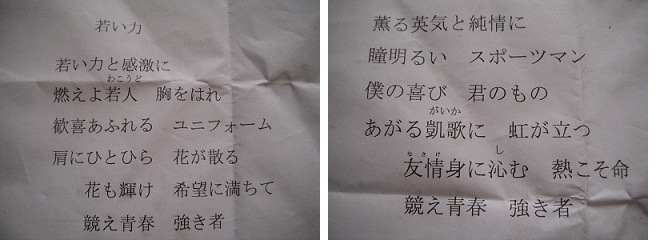 若い力
若い力と感激に
わこうど
燃えよ若人　胸をはれ
歓喜あふれる　ユニフォーム
肩にひとひら　花が散る
花も輝け　希望に満ちて
競え青春　強き者
薫る英気と純情に
瞳明るい　スポーツマン
僕の喜び　君のもの
がいか
あがる凱歌に　虹が立つ
なさけ　し
友情身に沁む　熱こそ命
競え青春　強き者